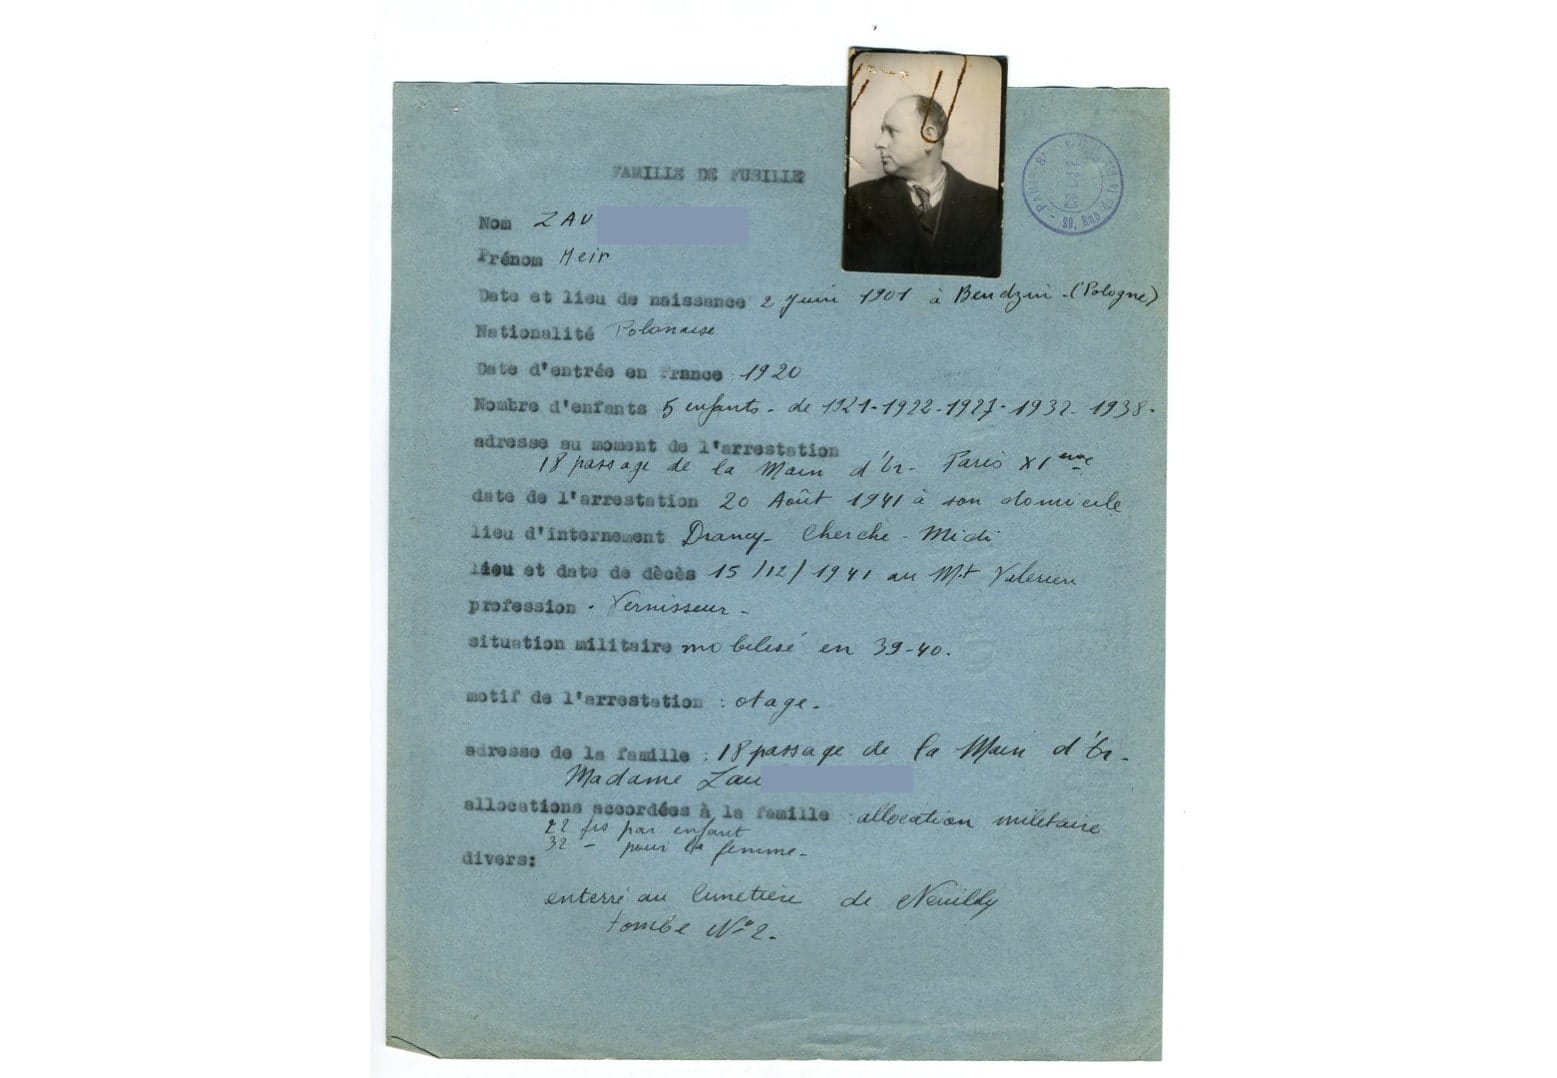 FAMILLE DE FUSILLE
Nom ZAU
Prénom Meir
Date et lieu de naissance 2 Juin 1901 à Bendzin - (Pologne)
Nationalité Polonaise
Date d'entrée en France : 1920
Nombre d'enfants 5 enfants - de 1921-1922-1927-1932-1938-
adresse au moment de l'arrestation
18 passage de la Main d'Or - Paris XI eme
date de l'arrestation 20 Août 1941 à son domicile
lieu d'internement Drancy - Cherche - Midi
lieu et date de décès 15/12/1941 au Mt Valerien
profession - Vernisseur -
situation militaire mobilisé en 39-40.
motif de l'arrestation : otage -
adresse de la famille : 18 passage de la Main d'Or -
Madame Zau
allocations accordées à la famille : allocation militaire
22 frs par enfant
32 - pour la femme -
divers:
enterré au Cimetière de Neuilly
tombe N° 2.
20, Rue